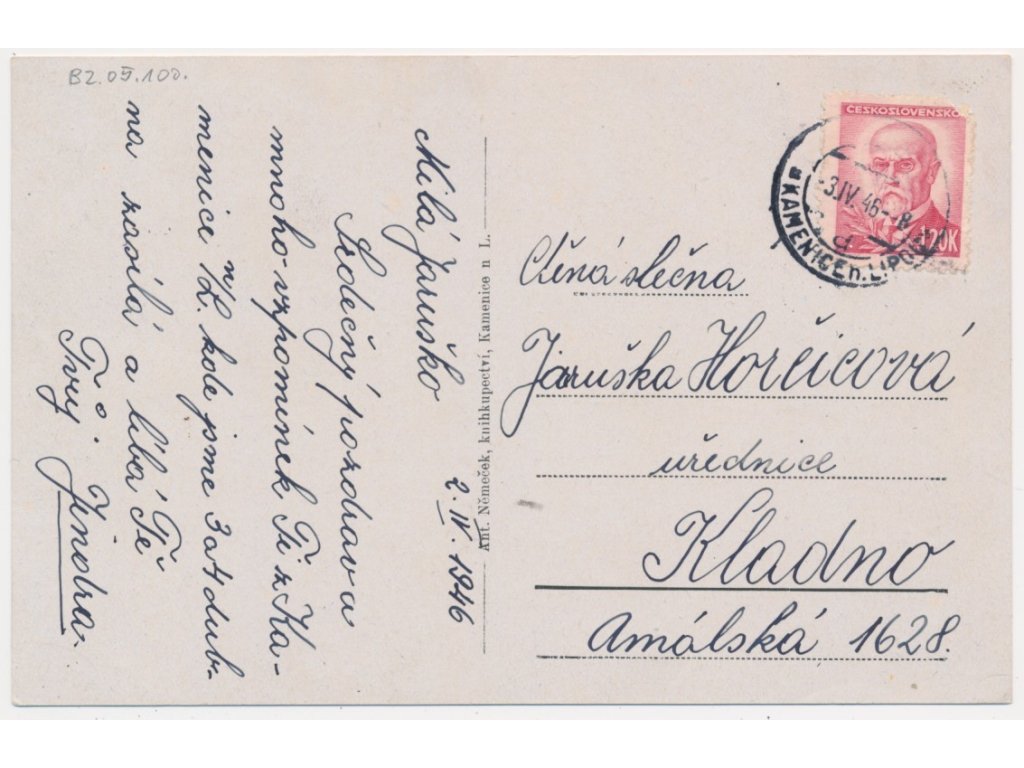 B2.05.100.
Milá Jaruško
2. IV. 1946
Srdečný pozdrav a
mnoho vzpomínek Ti z Ka-
menice n/L. kde jsme 3 a 4 dub.
na zasílá a líbá Tě
Tvůj Jindra.
Ant. Němeček, knihkupectví, Kamenice n L.
ČESKOSLOVENSKO
1.20K
-3.IV.46-8
KAMENICE n. LIPOU
Ctěná slečna
Jaruška Horčicová
úřednice
Kladno
Amálská 1628.